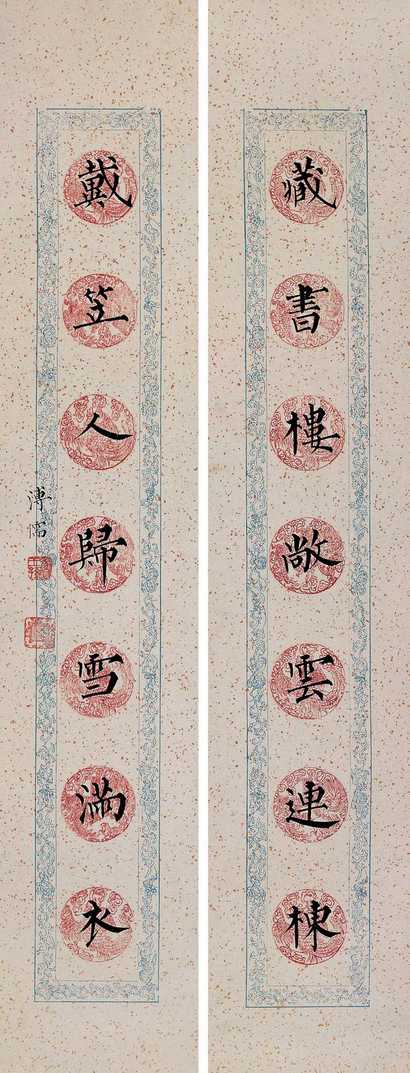 藏書樓敞雲連棟
戴笠人歸雪滿衣
溥儒